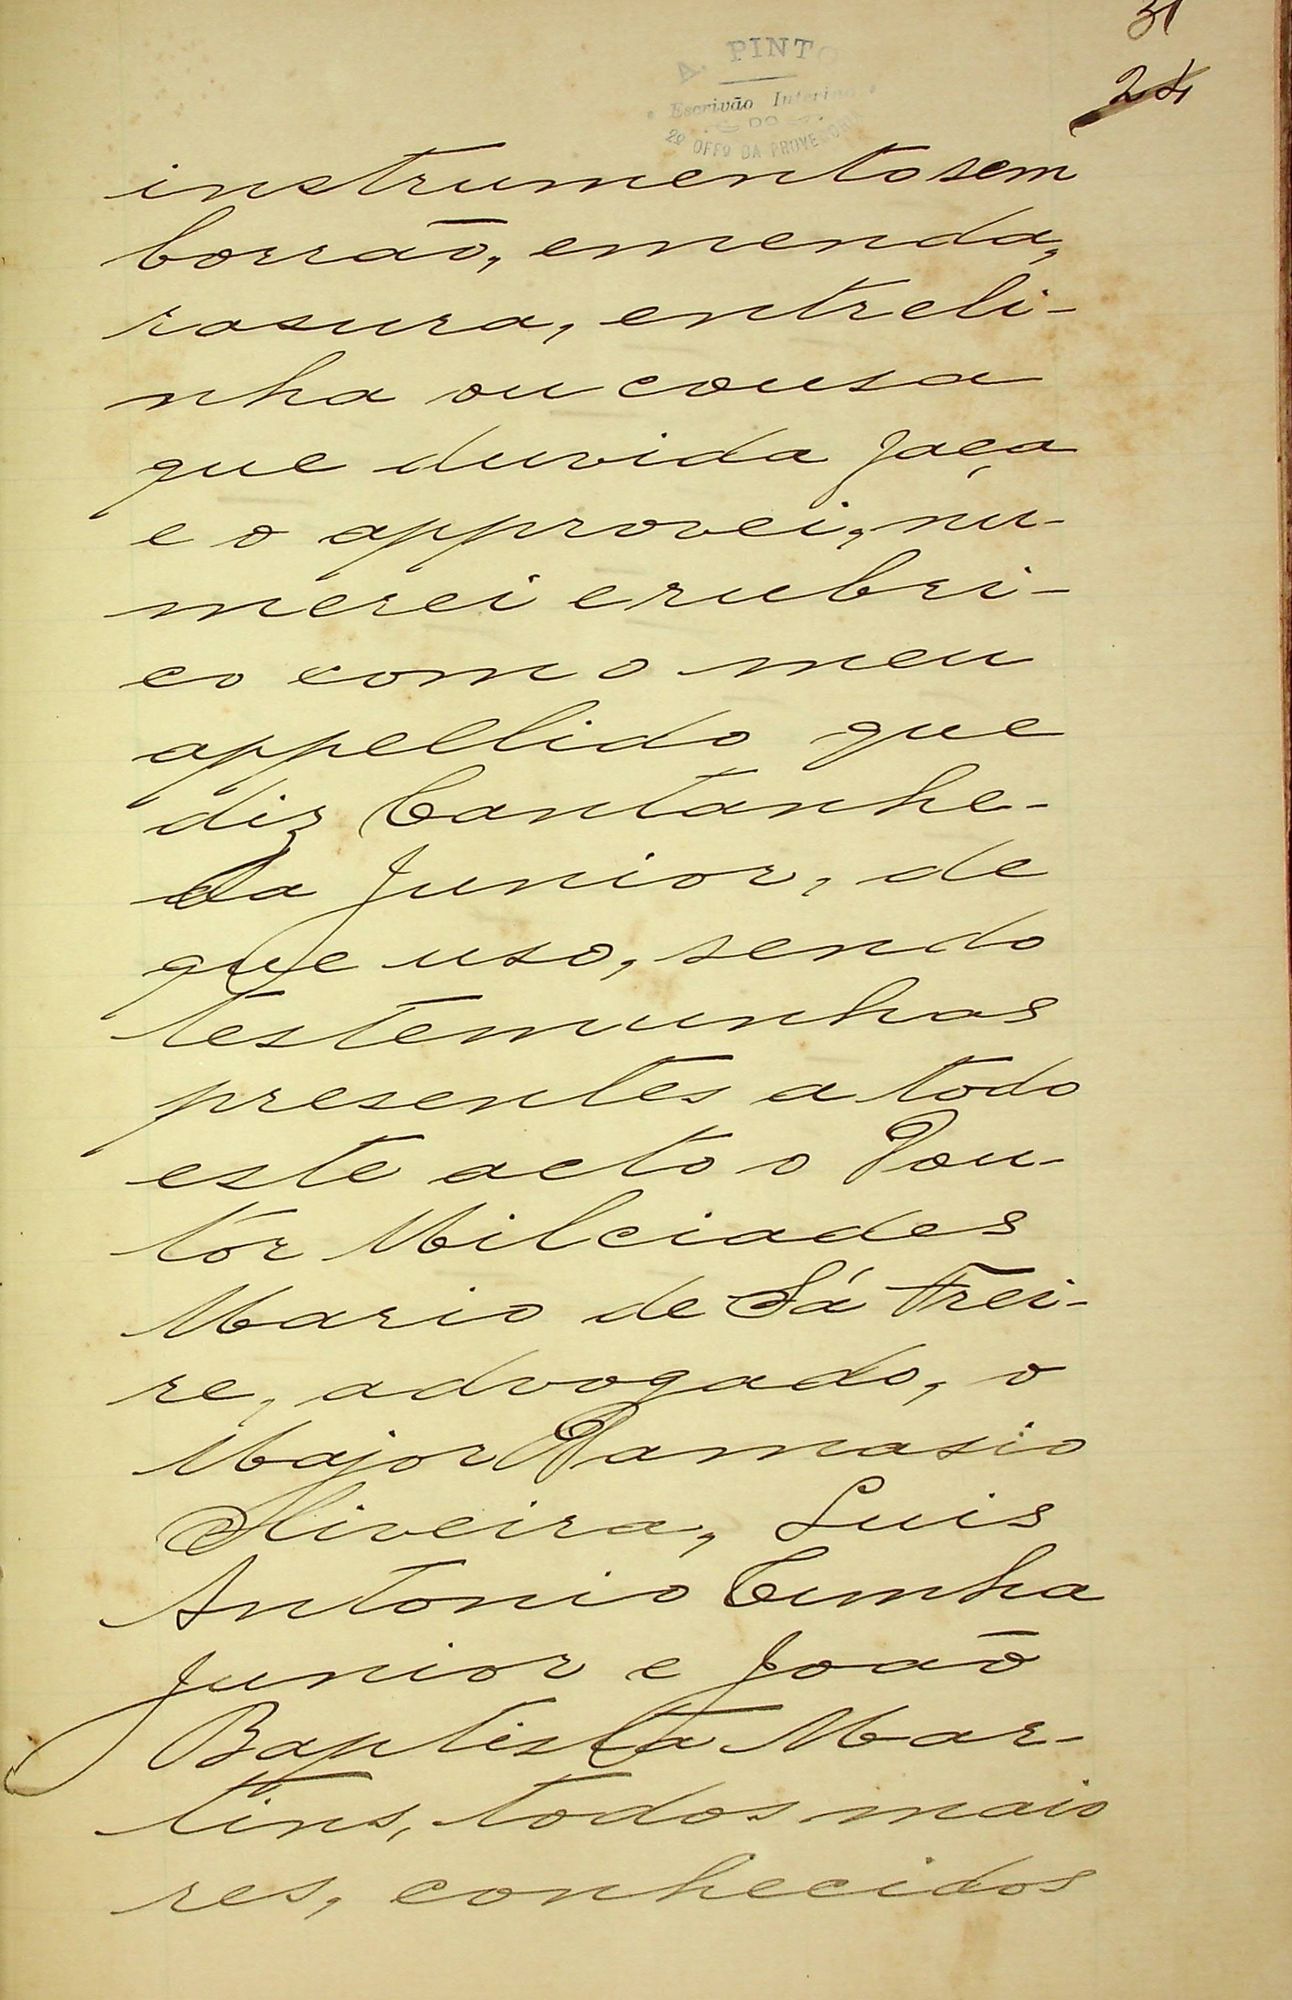 31
24
A. PINTO
Escrivão Interino
DO
2º OFFº DA PROVEDORIA
instrumento sem
borrão, emenda,
rasura, entreli-
nha ou cousa
que duvida faça
e o approvei, nu-
merei e rubri-
co com o meu
appellido que
diz Cantanhe-
da Junior, de
que uso, sendo
testemunhas
presentes a todo
este acto o Dou-
tor Milciades
Mario de Sá Frei-
re, advogado, o
Major Damasio
Oliveira, Luis
Antonio Cunha
Junior e João
Baptista Mar-
tins, todos maio
res, conhecidos